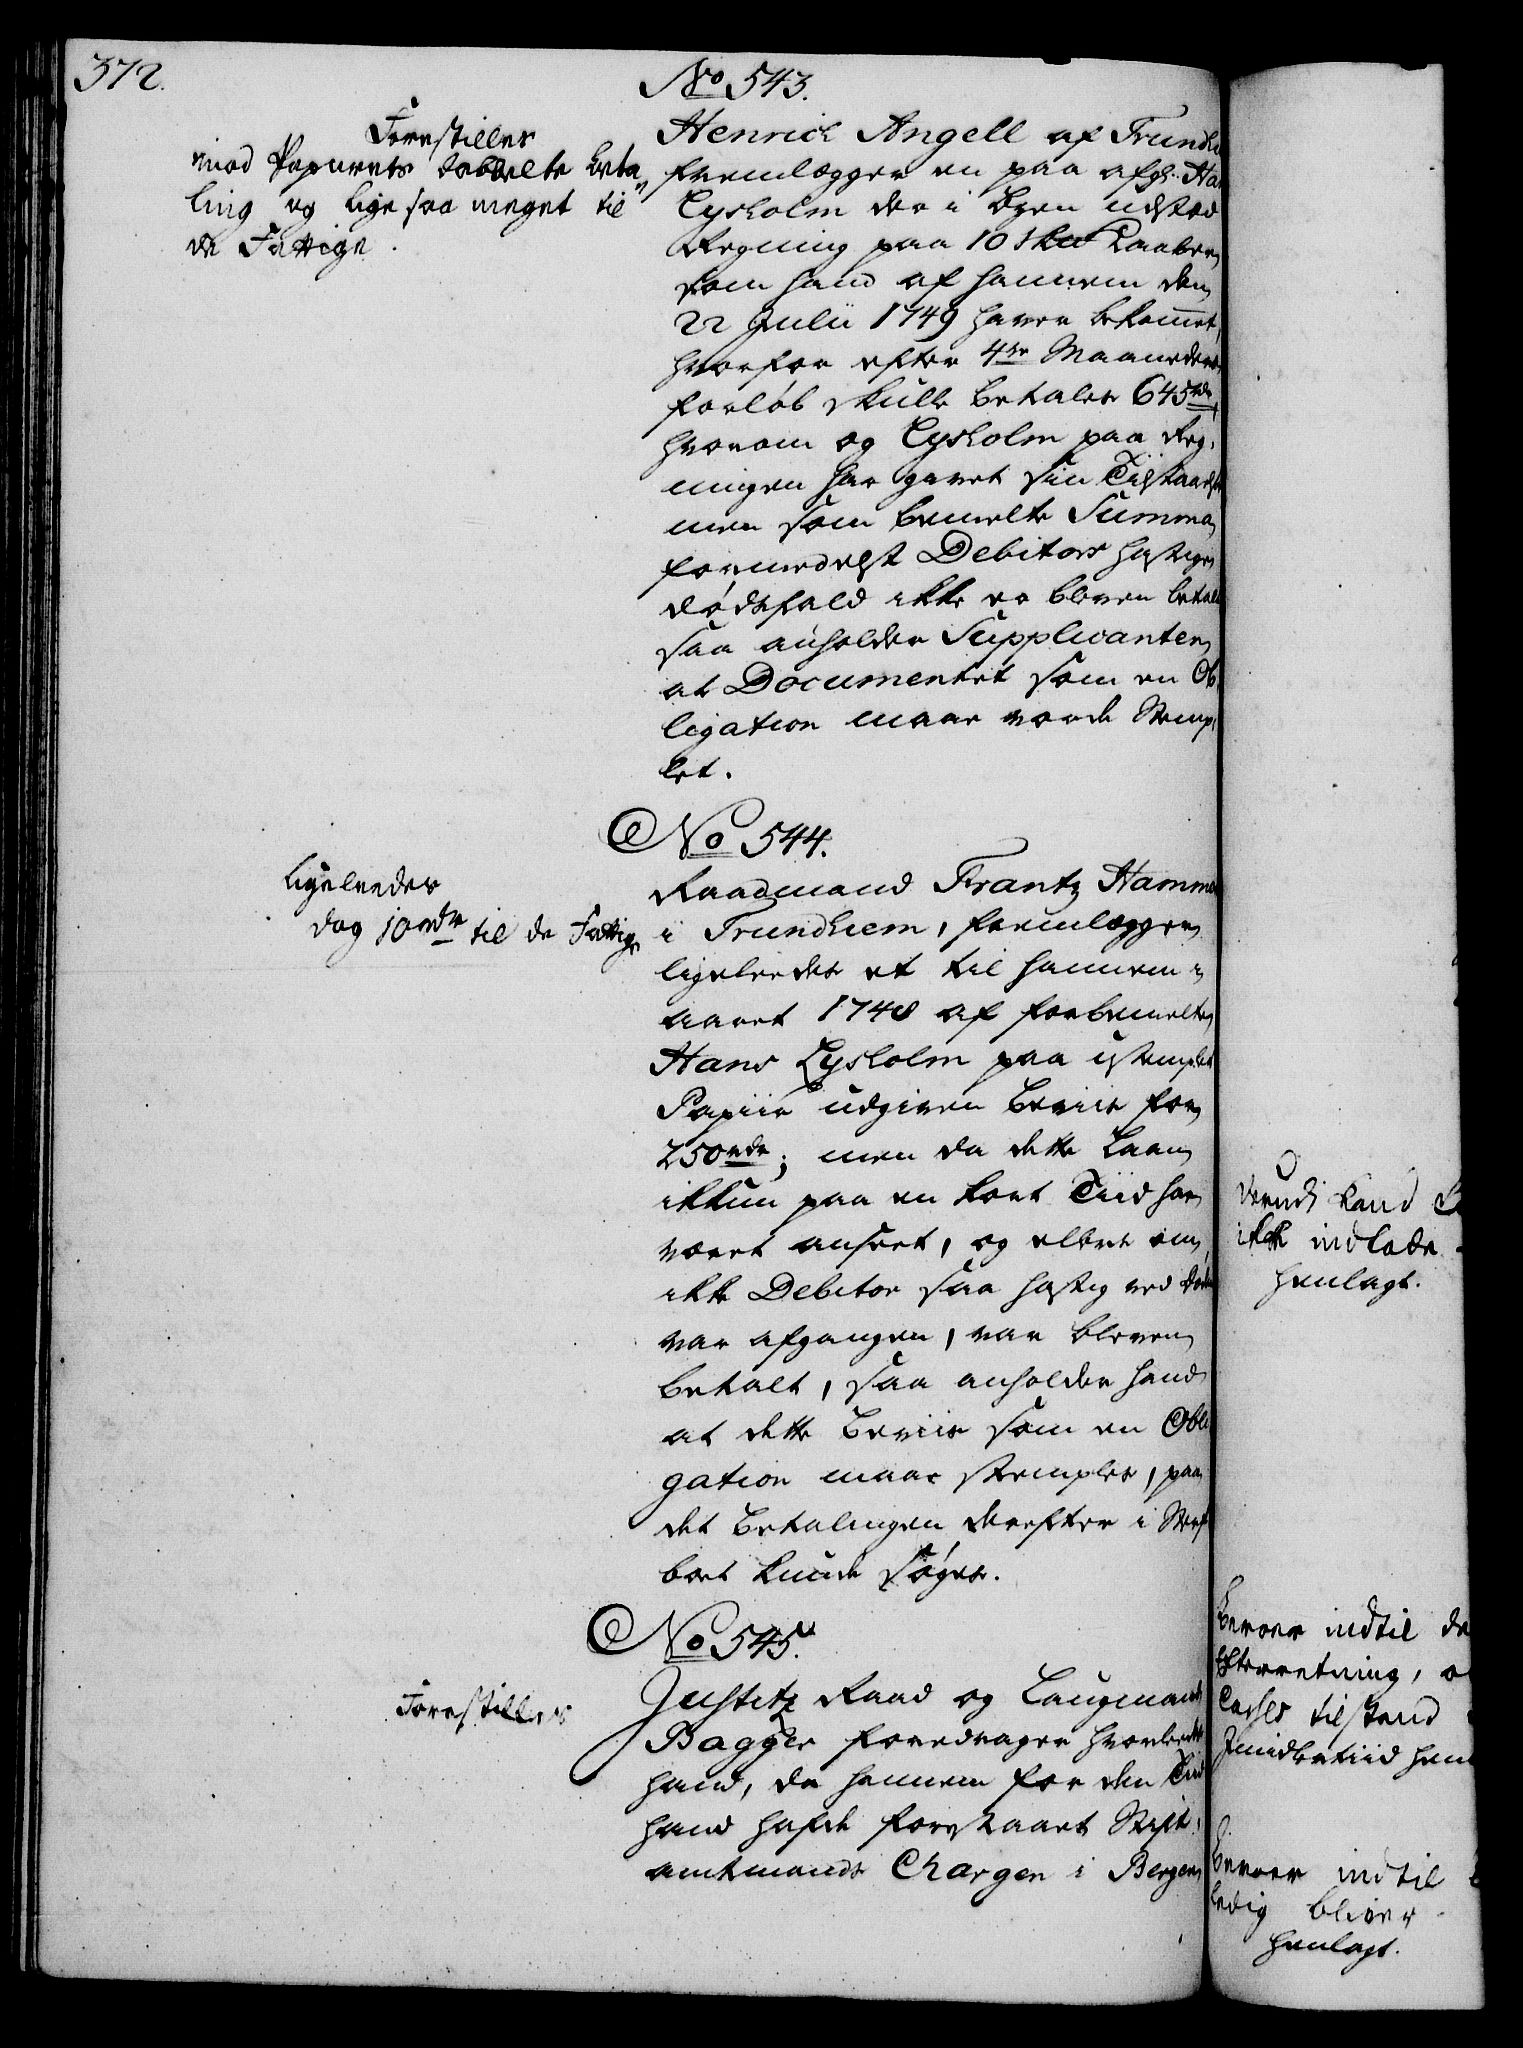 372.
No 543.
Forestilles
mod Papirets dobbelte beta„
ling og lige saa meget til
de Fattige.
Henrich Angell af Trundh
fremlegger en paa afg: Ha
Lysholm der i Byen udstæd
Regning paa 10 Kaaber
som hand af hannem den
22 Julii 1749 haver bekommet,
hvorfor efter 4re Maaneders
forløb skulle betales 645rdr,
hvorom og Lysholm paa Reg„
ningen har givet sin Tilstaaelse
men som bemelte Summa
formedelst Debitors hastige
dødsfald ikke er bleven betalt
saa anholder Supplicanten
at Documentet som en Ob„
ligation maae vorde Stemp„
let.
No 544.
ligeleedes
dog 10rdr til de Fattige
Raadmand Frantz Hammer
i Trundhiem, fremlegger
ligeleedes et til hannem i
aaret 1748 af forbemelte
Hans Lysholm paa ustemplet
Papiir udgiven Beviis for
250rdr; men da dette Laan
ikkun paa en kort Tiid har
været anseet, og ellers om
ikke Debitor saa hastig ved døden
var afgangen, var bleven
betalt, saa anholder hand
at dette Beviis som en Obli
gation maae stemples, paa
det Betalingen derefter i Sterf
boet kunde søges.
No 545.
Forestilles
Justitz Raad og Laugmand
Bagger foredrager hvorledes
hand, da hannem for den Tiid
hand hafde forestaaet Stift„
amtmands Chargen i Bergen
kand
ikke indlade
henlagt.
Beroer indtil de
Efterretning, o
Casses tilstand
Imidlertiid hen
Beroer indtil
ledig bliver
henlagt.